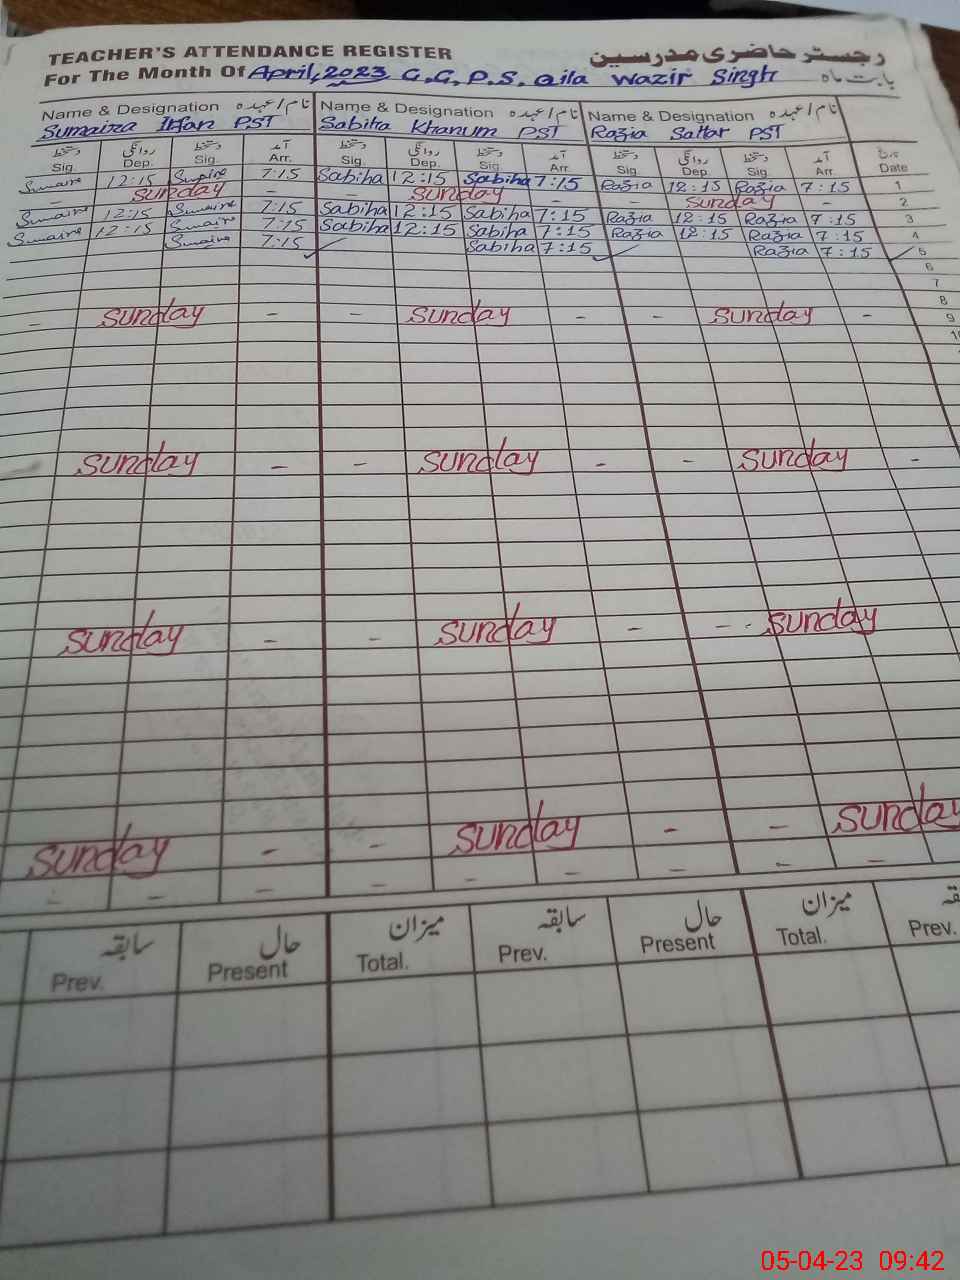 TEACHER'S ATTENDANCE REGISTER رجسٹر حاضری مدرسین
For The Month Of April, 2023 G.G.P.S. Qila Wazir Singh بابت ماہ
Name & Designation نام / عہدہ Name & Designation نام / عہدہ Name & Designation نام / عہدہ
Sumaira Irfan PST Sabiha Khanum PST Razia Sattar PST
دستخط روانگی دستخط آمد دستخط روانگی دستخط آمد دستخط روانگی دستخط آمد تاریخ
Sig. Dep. Sig. Arr. Sig. Dep. Sig. Arr. Sig. Dep. Sig. Arr. Date
Sumaira 12:15 Sumaira 7:15 Sabiha 12:15 Sabiha 7:15 Razia 12:15 Razia 7:15 1
- Sunday - - Sunday - - Sunday - 2
Sumaira 12:15 Sumaira 7:15 Sabiha 12:15 Sabiha 7:15 Razia 12:15 Razia 7:15 3
Sumaira 12:15 Sumaira 7:15 Sabiha 12:15 Sabiha 7:15 Razia 12:15 Razia 7:15 4
Sumaira 7:15 Sabiha 7:15 Razia 7:15 5
6
7
8
- Sunday - - Sunday - - Sunday - 9
10
Sunday - - Sunday - - Sunday -
Sunday - - Sunday - - - Sunday
Sunday - - Sunday - - Sunday
- - - - - - - -
سابقہ حال میزان سابقہ حال میزان
Prev. Present Total. Prev. Present Total. Prev.
05-04-23 09:42